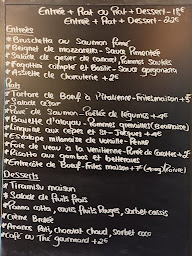 Entrée + Plat ou Plat + Dessert - 18€
Entrée + Plat + Dessert - 22€
Entrées
* Bruschetta au Saumon fumé
* Beignet de mozzarella - Sauce Pimentée
* Salade de gésier de canard, Pommes Sautées
* Fagottini complet et Basilic - Sauce gorgonzola
* Assiette de Charcuterie + 2€
Plats
* Tartare de Boeuf à l'italienne - Frites maison +
* Salade César
* de Saumon - Poêlée de légumes + 4€
* d'Agneau - Pommes grenailles
* Linguine aux cèpes et St - Jacques + 4€
* Escalope milanaise de volaille - Penne
* Foie de veau à la Vénitienne - Purée de Carottes +
* Risotto aux gambas et
* Entrecôte de Boeuf - Frites maison +
Desserts
* Tiramisu maison
* Salade de fruits frais
* Panna cotta, coulis fruits Rouges, sorbet cassis
* Crème Brulée
* Ananas Rôti, chocolat chaud, sorbet coco
* Café ou Thé gourmand + 2€